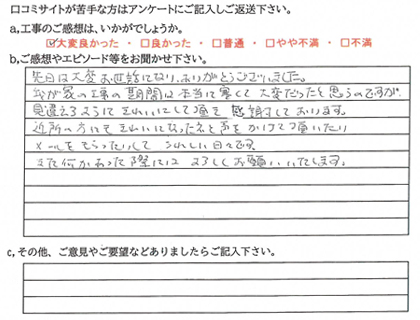 口コミサイトが苦手な方はアンケートにご記入しご返送下さい。
a,工事のご感想は、いかがでしょうか。
☑大変良かった ・ □良かった ・ □普通 ・ □やや不満 ・ □不満
b,ご感想やエピソード等をお聞かせ下さい。
先日は大変お世話になり、ありがとうございました。
我が家の工事の期間は本当に寒くて大変だったと思うのですが、
見違えるようにきれいにして頂き感謝しております。
近所の方にもきれいになったねと声をかけて頂いたり
メールをもらったりしてうれしい日々です。
また何かあった際にはよろしくお願いいたします。
c,その他、ご意見やご要望などありましたらご記入下さい。